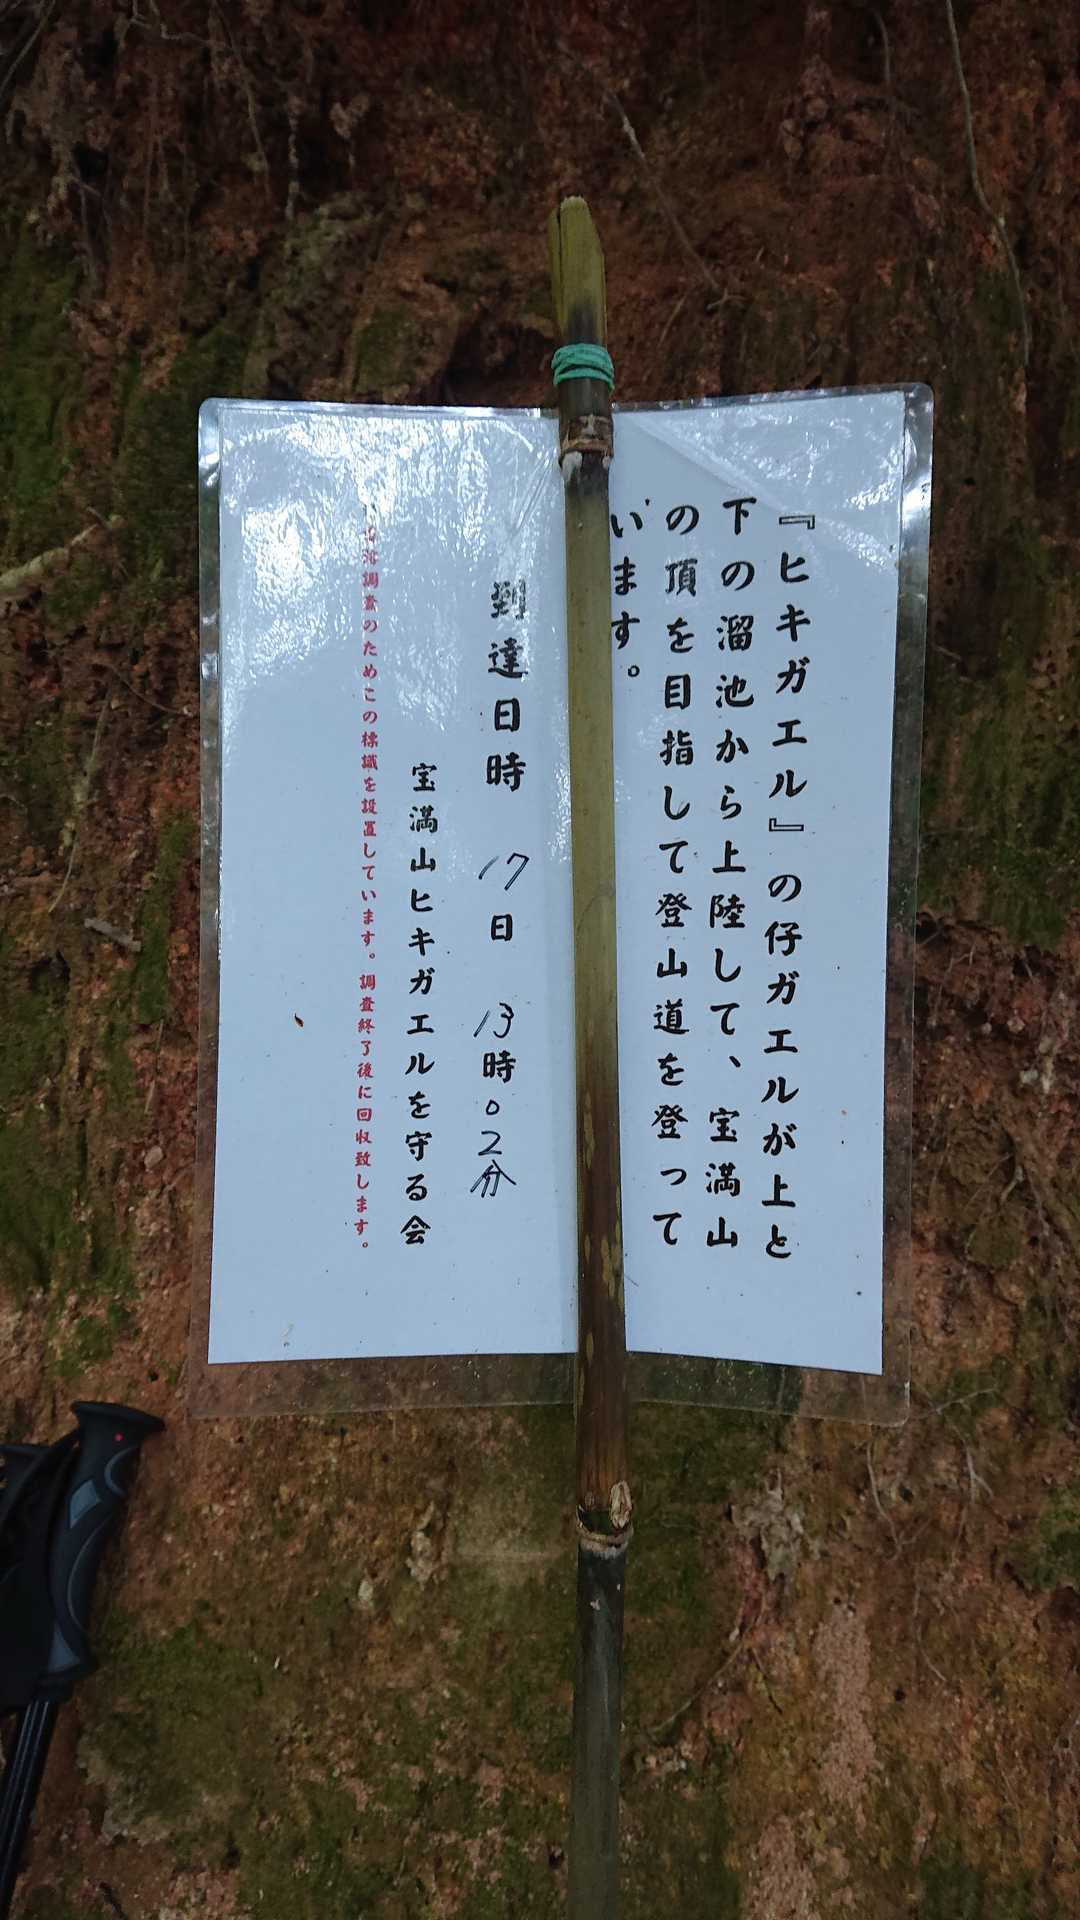 『ヒキガエル』の仔ガエルが上と
下の溜池から上陸して、宝満山
の頂を目指して登山道を登って
います。
到達日時 17日 13時02分
宝満山ヒキガエルを守る会
調査のためこの標識を設置しています。調査終了後に回収致します。